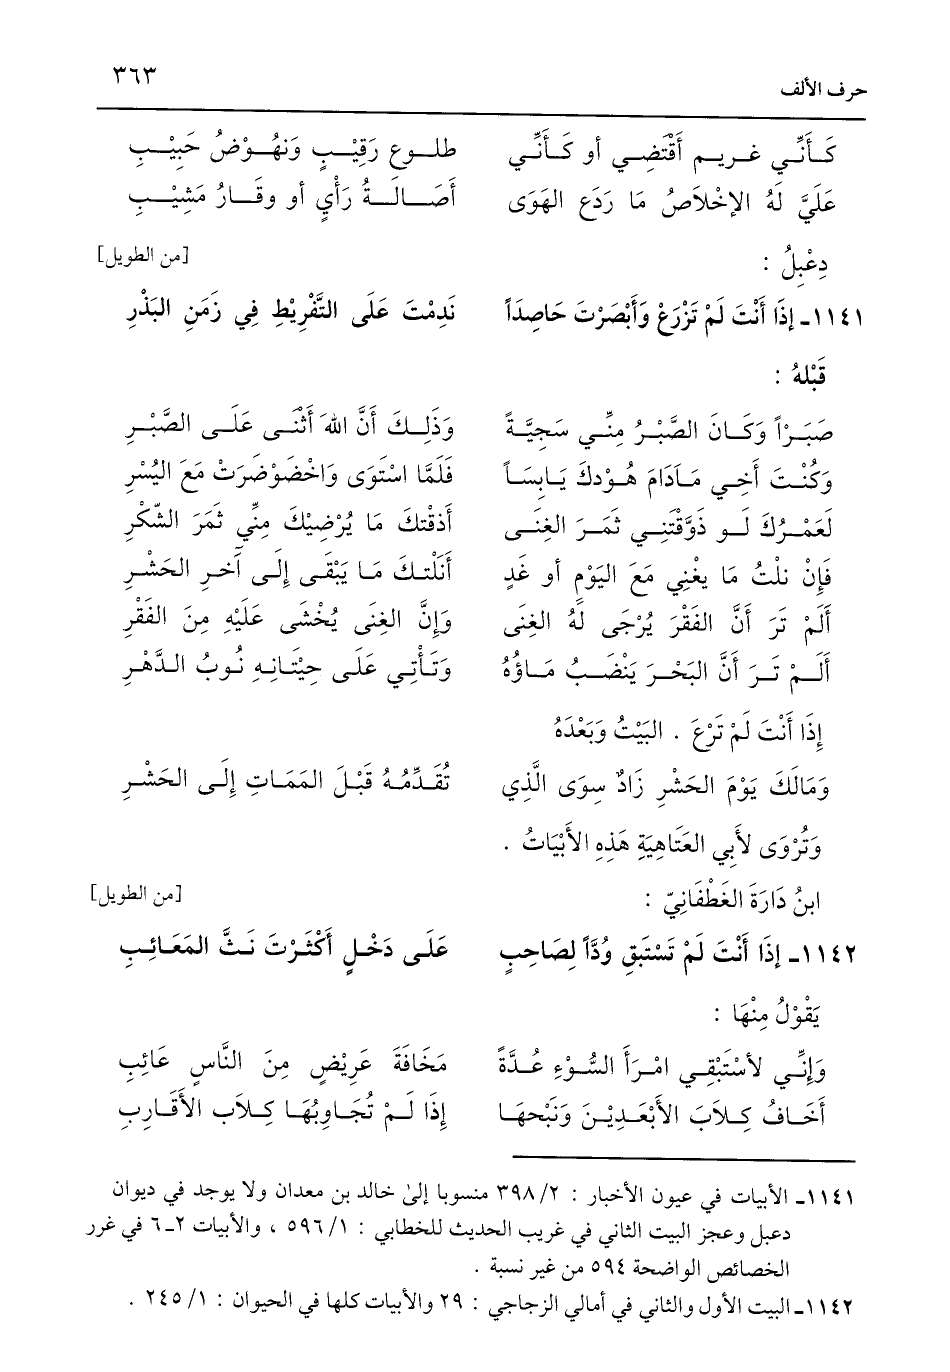 حرف الألف ٣٦٣
كَأَنِّي غريم أَقْتَضِي أو كَأَنِّي طلوع رَقِيْبٍ وَنهُوْضُ حَبِيْبِ
عَلَيَّ لَهُ الإخْلاَصُ مَا رَدَع الهَوَى أَصَالَةُ رَأْيٍ أو وقَارُ مَشِيْبِ
دِعْبِلُ : [من الطويل]
١١٤١ـ إِذَا أَنْتَ لَمْ تَزْرَعْ وَأَبْصَرْتَ حَاصِدَاً نَدِمْتَ عَلَى التَّفْرِيْطِ فِي زَمَنِ البَذْرِ
قَبْلهُ :
صَبَرَاً وَكَانَ الصَّبْرُ مِنِّي سَجِيَّةً وَذَلِكَ أَنَّ اللهَ أَثْنَى عَلَى الصَّبْرِ
وَكُنْتَ أَخِي مَادَامَ هُوْدكَ يَابِسَاً فَلَمَّا اسْتَوَى وَاخْضَوْضَرَتْ مَعَ اليُسْرِ
لَعَمْرُكَ لَو ذَوَّقْتَنِي ثَمَرَ الغِنَى أَذقْتكَ مَا يُرْضِيْكَ مِنِّي ثَمَرَ الشّكْرِ
فَإِنْ نلْتُ مَا يغْنِي مَعَ اليَوْمِ أو غَدٍ أَنَلْتكَ مَا يَبْقَى إِلَى آخرِ الحَشْرِ
أَلَمْ تَرَ أَنَّ الفَقْرَ يُرْجَى لَهُ الغِنَى وَإِنَّ الغِنَى يُخْشَى عَلَيْهِ مِنَ الفَقْرِ
أَلَمْ تَرَ أَنَّ البَحْرَ يَنْضَبُ مَاؤُهُ وَتَأْتِي عَلَى حِيْتَانِهِ نُوبُ الدَّهْرِ
إِذَا أَنْتَ لَمْ تَرْعَ . البَيْتُ وَبَعْدَهُ
وَمَالَكَ يَوْمَ الحَشْرِ زَادٌ سِوَى الَّذِي تُقَدِّمُهُ قَبْلَ المَمَاتِ إِلَى الحَشْرِ
وَتُرْوَى لأَبِي العَتَاهِيَةِ هَذِهِ الأَبْيَاتُ .
ابنُ دَارَةَ الغَطْفَانِيّ : [من الطويل]
١١٤٢ـ إِذَا أَنْتَ لَمْ تَسْتَبَقِ وُدَّاً لِصَاحِبٍ عَلَى دَخْلٍ أَكْثَرْتَ نَثَّ المَعَائِبِ
يَقْوْلُ مِنْهَا :
وَإِنِّي لأَسْتَبْقِي امْرَأَ السُّوْءِ عُدَّةً مَخَافَةَ عَرِيْضٍ مِنَ النَّاسِ عَائِبِ
أَخَافُ كِلاَبَ الأَبْعَدِيْنَ وَنَبْحهَا إِذَا لَمْ تُجَاوِبُهَا كِلاَب الأَقَارِبِ
١١٤١ـ الأبيات في عيون الأخبار : ٢/ ٣٩٨ منسوبا إلى خالد بن معدان ولا يوجد في ديوان
دعبل وعجز البيت الثاني في غريب الحديث للخطابي : ١/ ٥٩٦ ، والأبيات ٢ـ٦ في غرر
الخصائص الواضحة ٥٩٤ من غير نسبة .
١١٤٢ـ البيت الأول والثاني في أمالي الزجاجي : ٢٩ والأبيات كلها في الحيوان : ١/ ٢٤٥ .